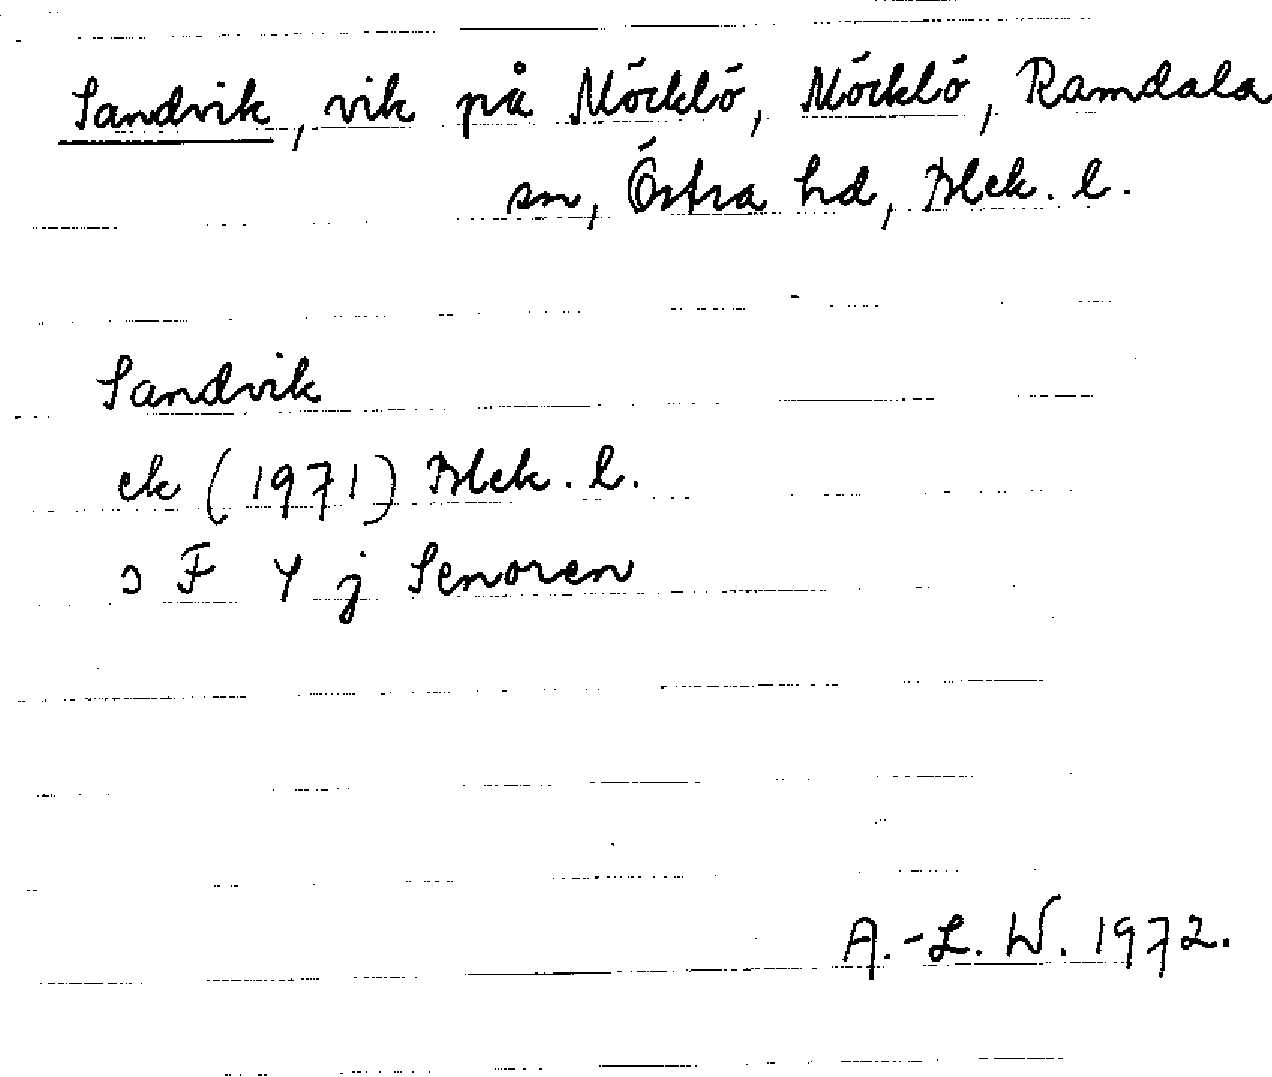 Sandvik, vik på Möcklö, Möcklö, Ramdala
sn, Östra hd, Blek. l.
Sandvik
ek (1971) Blek. l.
ɔ F Y j Senoren
A.-L. W. 1972.